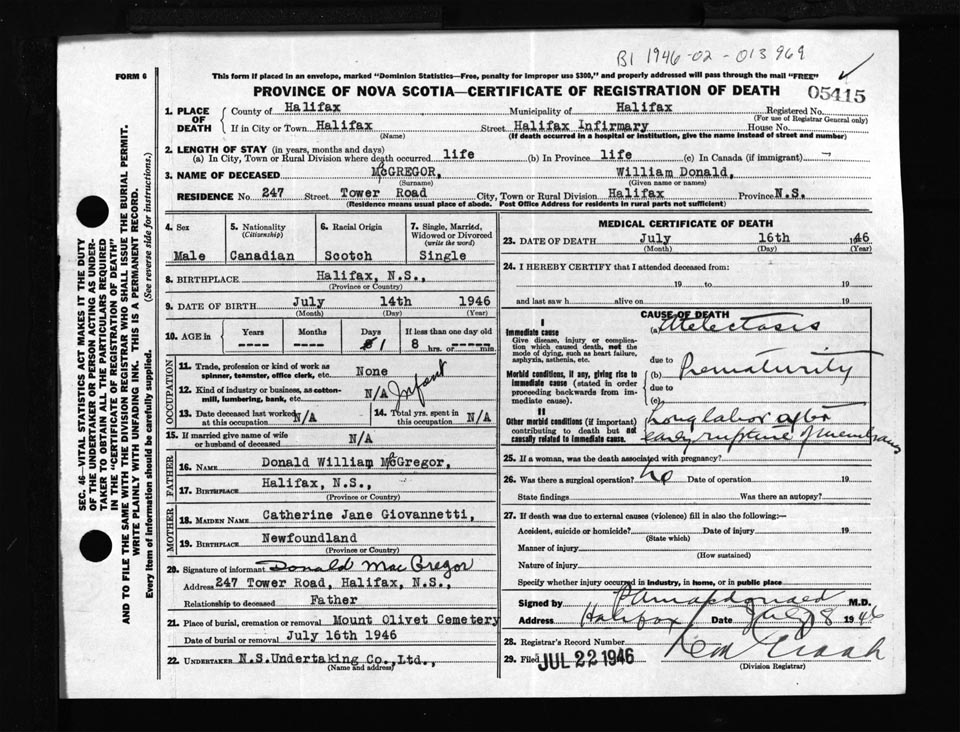 B1 1946-02-013969
FORM 6
This form if placed in an envelope, marked "Dominion Statistics—Free, penalty for improper use $300," and properly addressed will pass through the mail "FREE"
PROVINCE OF NOVA SCOTIA—CERTIFICATE OF REGISTRATION OF DEATH
05415
1. PLACE OF DEATH County of Halifax Municipality of Halifax Registered No.
(For use of Registrar General only)
If in City or Town Halifax Street Halifax Infirmary House No.
(Name) (If death occurred in a hospital or institution, give the name instead of street and number)
2. LENGTH OF STAY (in years, months and days)
(a) In City, Town or Rural Division where death occurred life (b) In Province life (c) In Canada (if immigrant)
3. NAME OF DECEASED McGREGOR, William Donald,
(Surname) (Given name or names)
RESIDENCE No 247 Street Tower Road City, Town or Rural Division Halifax Province N.S.
(Residence means usual place of abode. Post Office Address for residents in rural parts not sufficient)
SEC. 46—VITAL STATISTICS ACT MAKES IT THE DUTY
OF THE UNDERTAKER OR PERSON ACTING AS UNDER-
TAKER TO OBTAIN ALL THE PARTICULARS REQUIRED
IN THE "CERTIFICATE OF REGISTRATION OF DEATH"
AND TO FILE THE SAME WITH THE DIVISION REGISTRAR WHO SHALL ISSUE THE BURIAL PERMIT.
WRITE PLAINLY WITH UNFADING INK. THIS IS A PERMANENT RECORD.
Every item of information should be carefully supplied. (See reverse side for instructions.)
4. Sex 5. Nationality (Citizenship) 6. Racial Origin 7. Single, Married, Widowed or Divorced (write the word)
Male Canadian Scotch Single
8. BIRTHPLACE Halifax, N.S.,
(Province or Country)
9. DATE OF BIRTH July 14th 1946
(Month) (Day) (Year)
10. AGE in Years Months Days If less than one day old
---- ---- 1 8 hrs. or ----- min.
OCCUPATION
11. Trade, profession or kind of work as spinner, teamster, office clerk, etc. None
12. Kind of industry or business, as cotton-mill, lumbering, bank, etc. N/A Infant
13. Date deceased last worked at this occupation N/A 14. Total yrs. spent in this occupation N/A
15. If married give name of wife or husband of deceased N/A
FATHER
16. NAME Donald William McGregor,
17. BIRTHPLACE Halifax, N.S.,
(Province or Country)
MOTHER
18. MAIDEN NAME Catherine Jane Giovannetti,
19. BIRTHPLACE Newfoundland
(Province or Country)
20. Signature of informant Donald MacGregor
Address 247 Tower Road, Halifax, N.S.,
Relationship to deceased Father
21. Place of burial, cremation or removal Mount Olivet Cemetery
Date of burial or removal July 16th 1946
22. UNDERTAKER N.S.Undertaking Co., Ltd.,
(Name and address)
MEDICAL CERTIFICATE OF DEATH
23. DATE OF DEATH July 16th 1946
(Month) (Day) (Year)
24. I HEREBY CERTIFY that I attended deceased from:
19 to 19
and last saw h alive on 19
CAUSE OF DEATH
I
Immediate cause (a) Atelectasis
Give disease, injury or complication which caused death, not the mode of dying, such as heart failure, asphyxia, asthenia, etc.
due to
Morbid conditions, if any, giving rise to immediate cause (stated in order proceeding backwards from immediate cause). (b) Prematurity
due to
(c)
II
Other morbid conditions (if important) contributing to death but not causally related to immediate cause.
Long labor after
early rupture of membranes
25. If a woman, was the death associated with pregnancy?
26. Was there a surgical operation? no Date of operation 19
State findings Was there an autopsy?
27. If death was due to external causes (violence) fill in also the following:—
Accident, suicide or homicide? Date of injury 19
(State which)
Manner of injury
(How sustained)
Nature of injury
Specify whether injury occurred in industry, in home, or in public place
Signed by M.D.
Address Halifax Date July 8 1946
28. Registrar's Record Number
29. Filed JUL 22 1946
(Division Registrar)